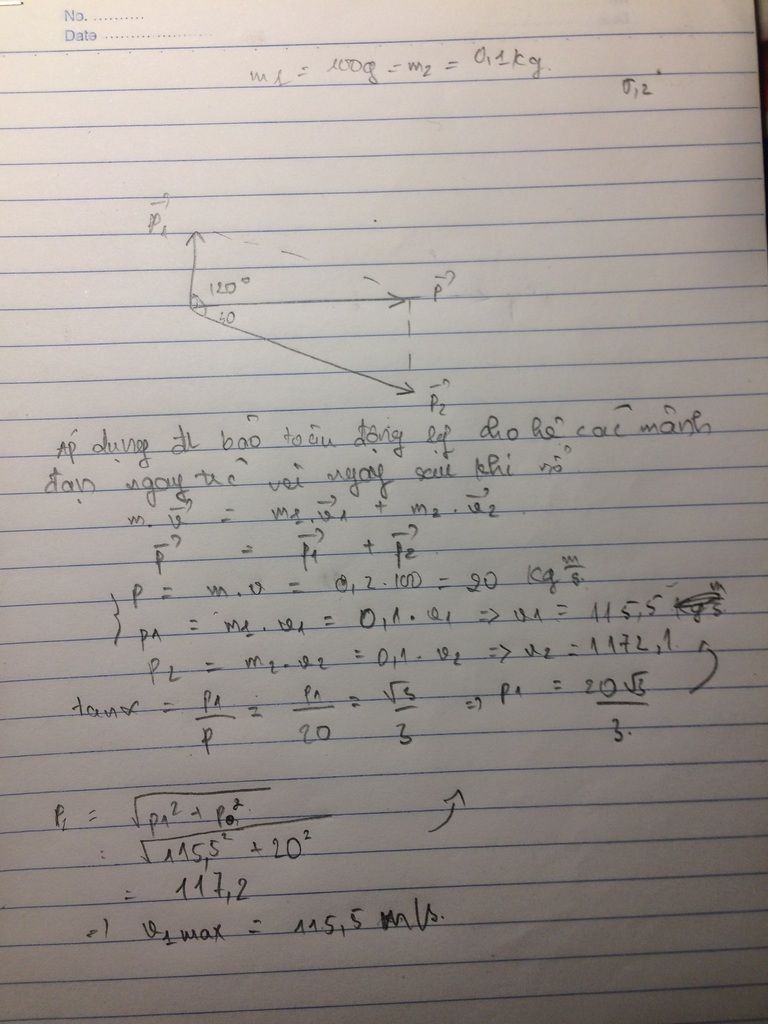 No. ..........
Date ......................
m1 = 100g = m2 = 0,1kg.
0,2
p1
120°
30
p
p2
Áp dụng đl bảo toàn động lg cho hệ các mảnh
đạn ngay trc với ngay sau khi nổ
m.v = m1.v1 + m2.v2
p = p1 + p2
p = m.v = 0,2.100 = 20 kg m/s
p1 = m1.v1 = 0,1.v1 => v1 = 115,5
p2 = m2.v2 = 0,1.v2 => v2 = 1172,1
tanα = p1/p = p1/20 = √3/3 => p1 = 20√3/3.
P1 = √p1² + p²
: √115,5² + 20²
= 117,2
=) v1 max = 115,5 m/s.